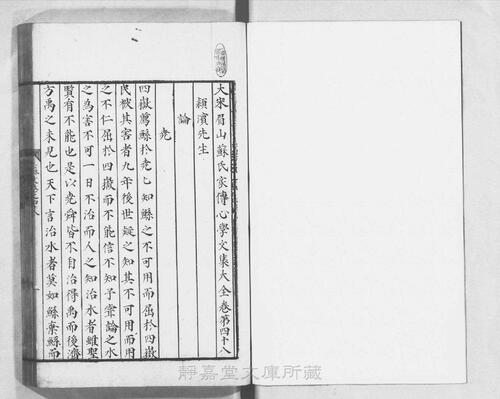 大宋眉山蘇氏家傳心學文集大全卷第四十八
潁濱先生
論
堯
四嶽薦鯀於堯堯知鯀之不可用而屈於四嶽
民被其害者九年後世疑之知其不可用而用
之不仁屈於四嶽而不能信不知予嘗論之水
之為害不可一日不治而人之知治水者雖聖
賢有不能也是以堯舜皆不自治得禹而後濟
方禹之未見也天下言治水者莫如鯀棄鯀而
靜嘉堂文庫所藏